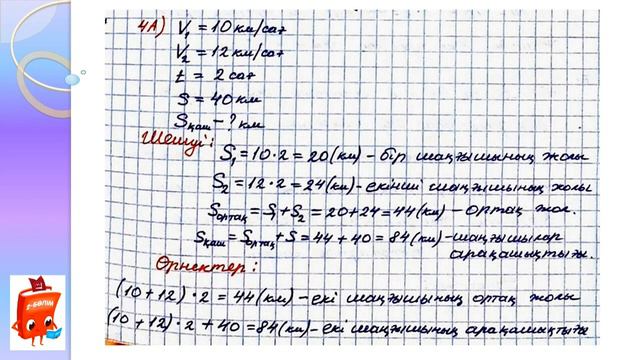 4А) V₁ = 10 км/сағ
V₂ = 12 км/сағ
t = 2 сағ
S = 40 км
Sқаш – ? км
Шешуі:
S₁ = 10 · 2 = 20 (км) – бір шаңғышының жолы
S₂ = 12 · 2 = 24 (км) – екінші шаңғышының жолы
Sортақ = S₁ + S₂ = 20 + 24 = 44 (км) – ортақ жол.
Sқаш = Sортақ + S = 44 + 40 = 84 (км) – шаңғышылар
арақашықтығы.
Өрнектер:
(10 + 12) · 2 = 44 (км) – екі шаңғышының ортақ жолы
(10 + 12) · 2 + 40 = 84 (км) – екі шаңғышының арақашықтығы
1-БӨЛІМ